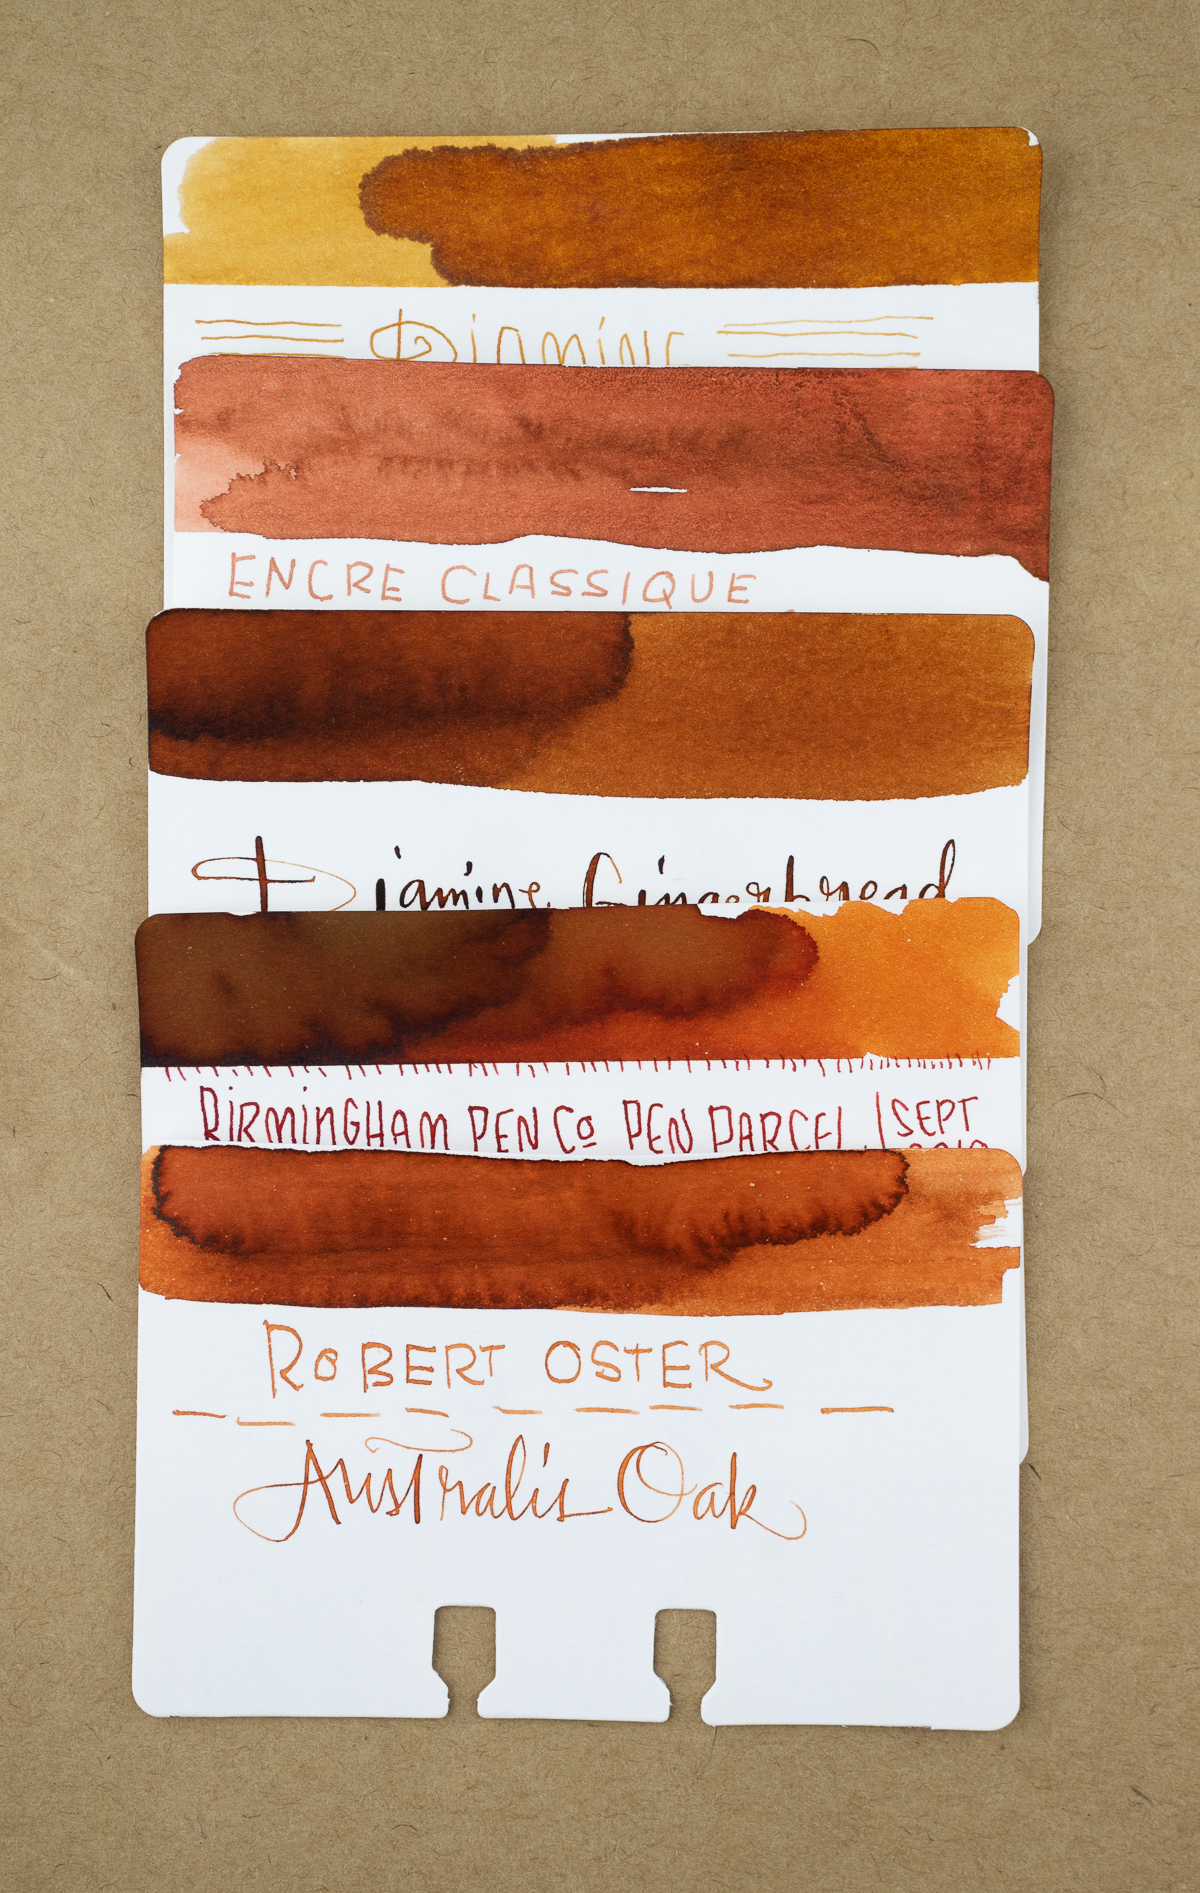 Diamine
ENCRE CLASSIQUE
Diamine Gingerbread
BIRMINGHAM PEN Co PEN PARCEL | SEPT
ROBERT OSTER
Australis Oak